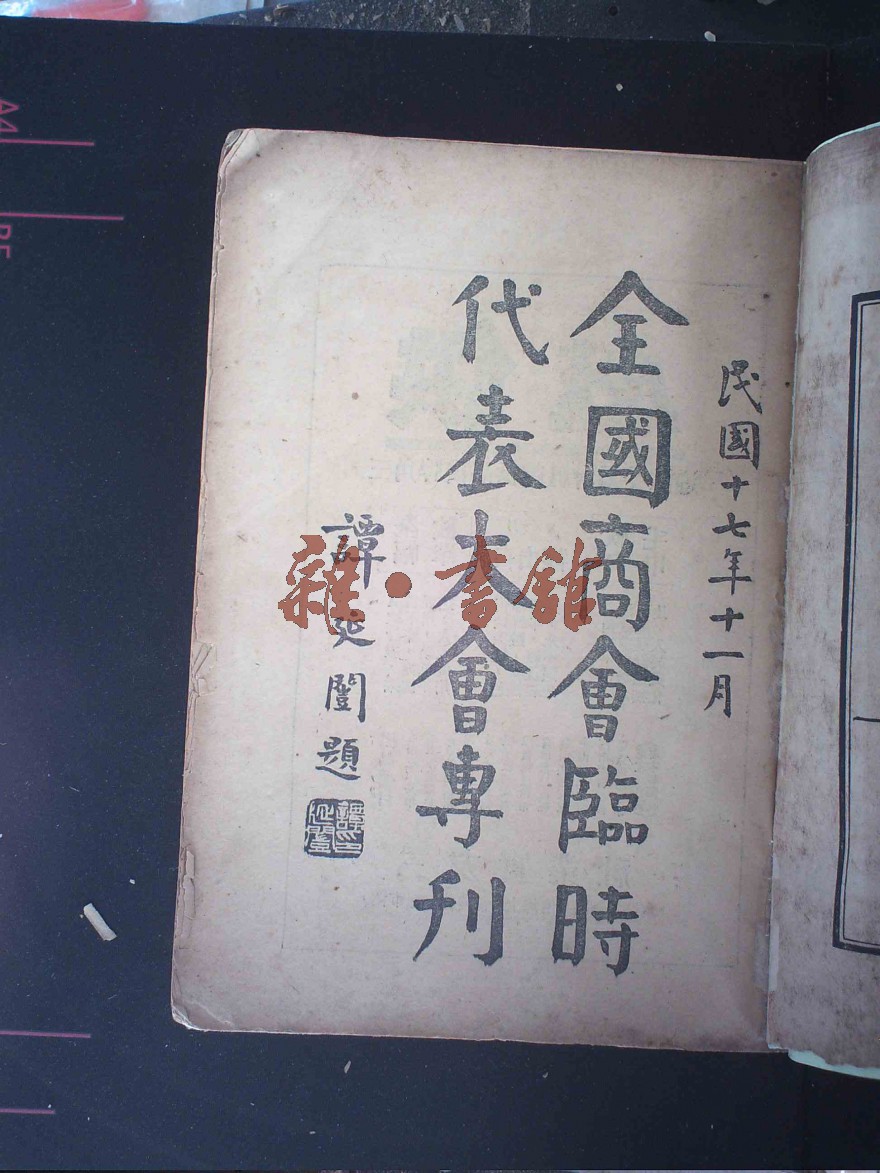 民國十七年十一月
全國商會臨時
代表大會專刊
譚延闓題
譚延闓印
雜·書館
A4